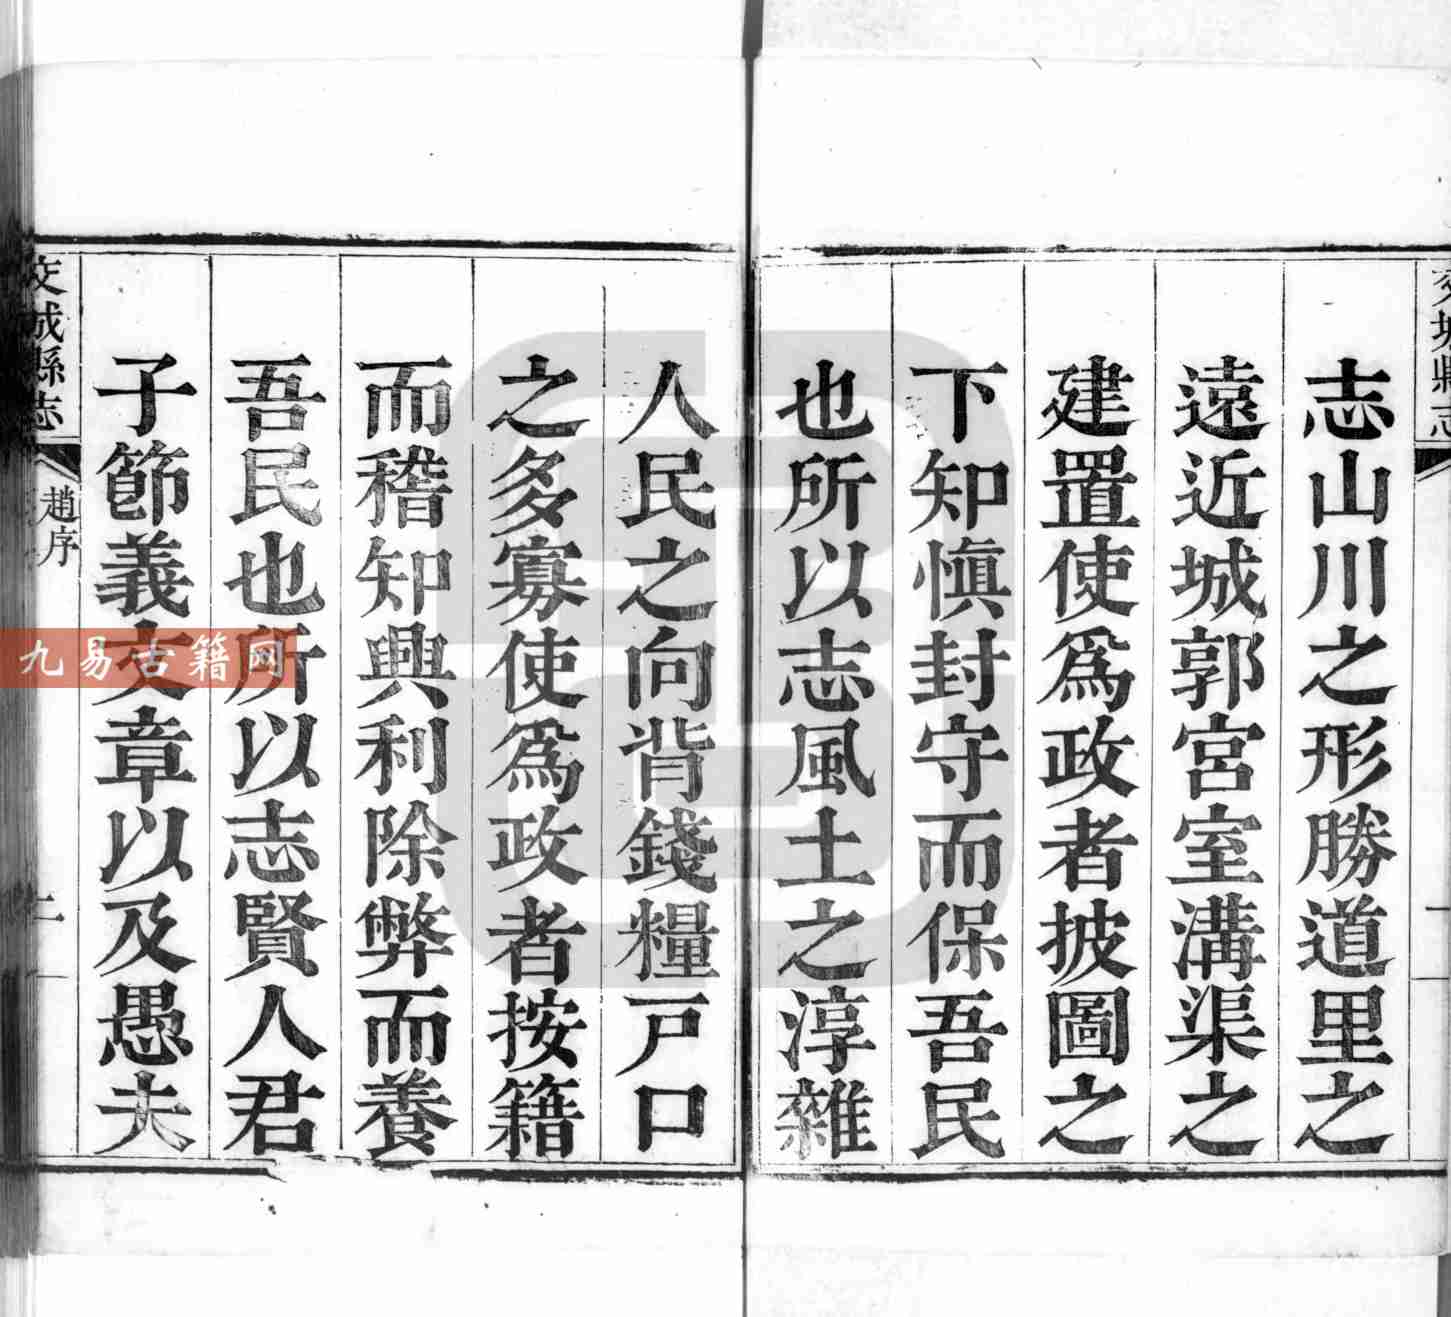 交城縣志
志山川之形勝道里之
遠近城郭宮室溝渠之
建置使爲政者披圖之
下知愼封守而保吾民
也所以志風土之淳雜
人民之向背錢糧戸口
之多寡使爲政者按籍
而稽知興利除弊而養
吾民也所以志賢人君
子節義文章以及愚夫
交城縣志
趙序
二
九易古籍网